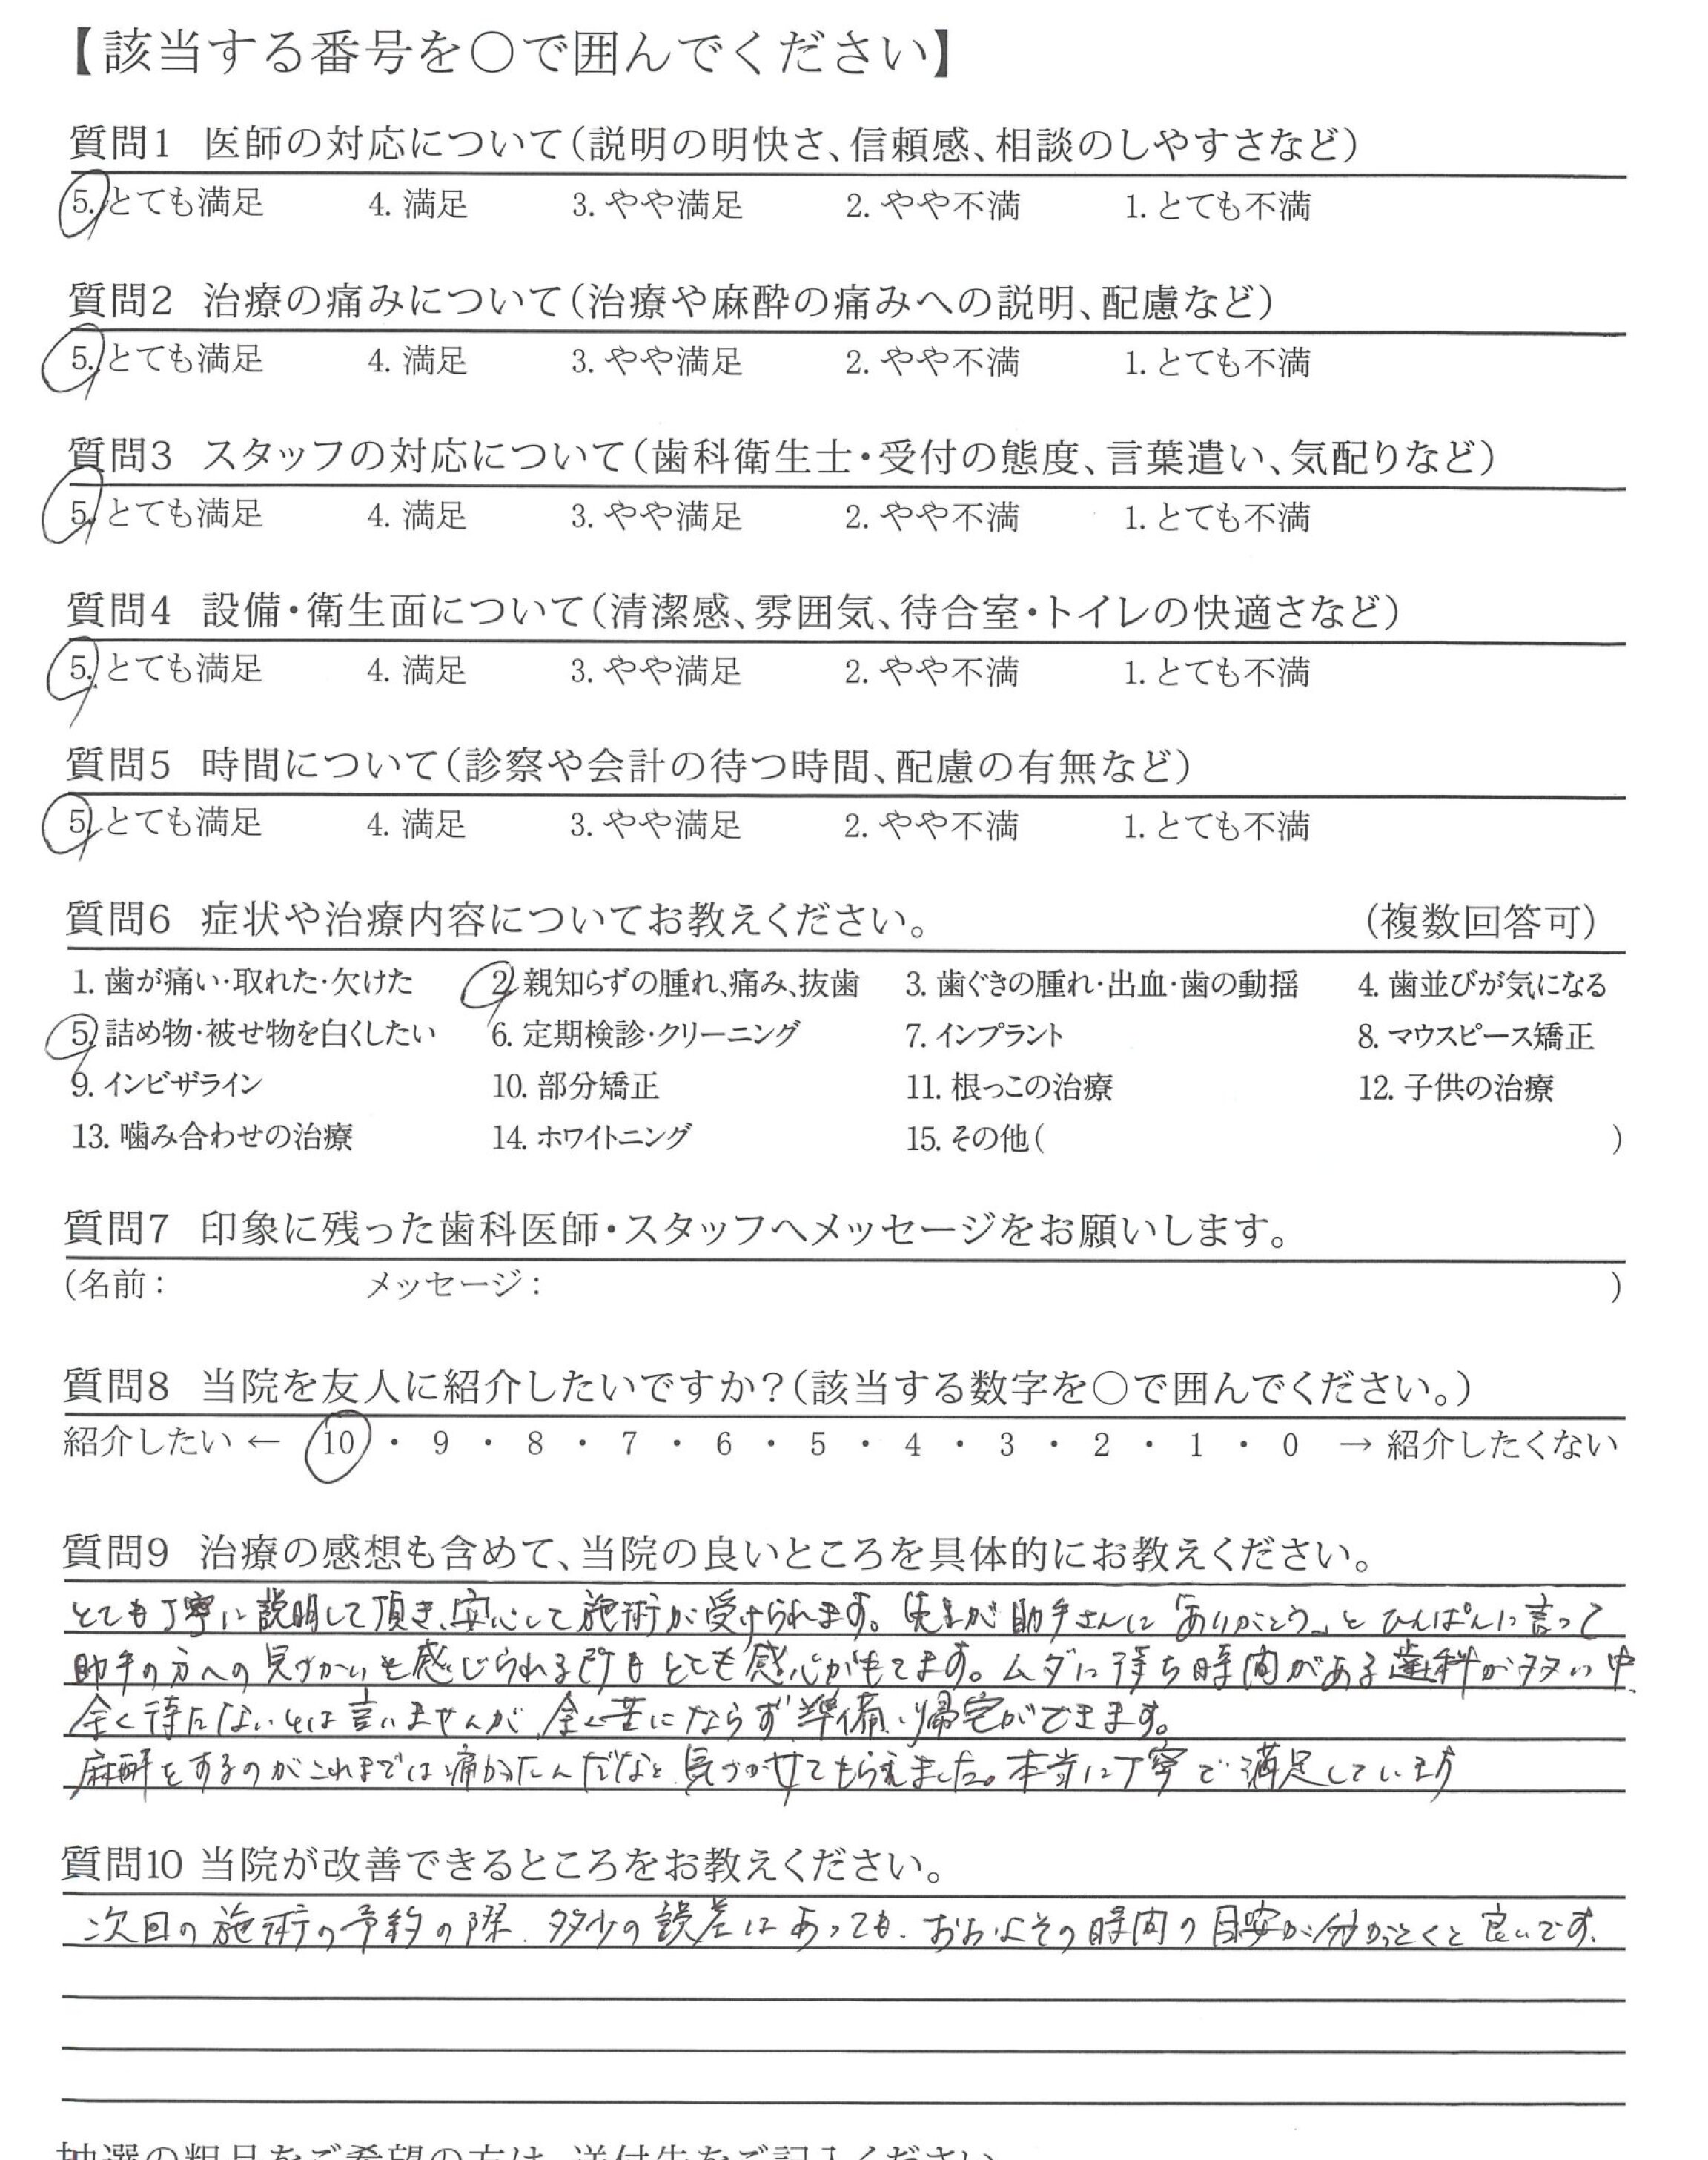 【該当する番号を○で囲んでください】
質問1 医師の対応について(説明の明快さ、信頼感、相談のしやすさなど)
5. とても満足 4. 満足 3. やや満足 2. やや不満 1. とても不満
質問2 治療の痛みについて(治療や麻酔の痛みへの説明、配慮など)
5. とても満足 4. 満足 3. やや満足 2. やや不満 1. とても不満
質問3 スタッフの対応について(歯科衛生士・受付の態度、言葉遣い、気配りなど)
5. とても満足 4. 満足 3. やや満足 2. やや不満 1. とても不満
質問4 設備・衛生面について(清潔感、雰囲気、待合室・トイレの快適さなど)
5. とても満足 4. 満足 3. やや満足 2. やや不満 1. とても不満
質問5 時間について(診察や会計の待つ時間、配慮の有無など)
5. とても満足 4. 満足 3. やや満足 2. やや不満 1. とても不満
質問6 症状や治療内容についてお教えください。 (複数回答可)
1. 歯が痛い・取れた・欠けた 2. 親知らずの腫れ、痛み、抜歯 3. 歯ぐきの腫れ・出血・歯の動揺 4. 歯並びが気になる
5. 詰め物・被せ物を白くしたい 6. 定期検診・クリーニング 7. インプラント 8. マウスピース矯正
9. インビザライン 10. 部分矯正 11. 根っこの治療 12. 子供の治療
13. 噛み合わせの治療 14. ホワイトニング 15. その他( )
質問7 印象に残った歯科医師・スタッフへメッセージをお願いします。
(名前: メッセージ: )
質問8 当院を友人に紹介したいですか?(該当する数字を○で囲んでください。)
紹介したい ← 10 ・ 9 ・ 8 ・ 7 ・ 6 ・ 5 ・ 4 ・ 3 ・ 2 ・ 1 ・ 0 → 紹介したくない
質問9 治療の感想も含めて、当院の良いところを具体的にお教えください。
とても丁寧に説明して頂き、安心して施術が受けられます。先生が助手さんに「ありがとう」とひんぱんに言って
助手の方への気づかいを感じられる所もとても感心がもてます。ムダに待ち時間がある歯科が多い中、
全く待たないとは言いませんが、全く苦にならず準備、帰宅ができます。
麻酔をするのがこれまでは痛かったんだなと気づかせてもらえました。本当に丁寧で満足しています
質問10 当院が改善できるところをお教えください。
次回の施術の予約の際、多少の誤差はあっても、おおよその時間の目安が分かっとくと良いです。
抽選の粗品をご希望の方は、送付先をご記入ください